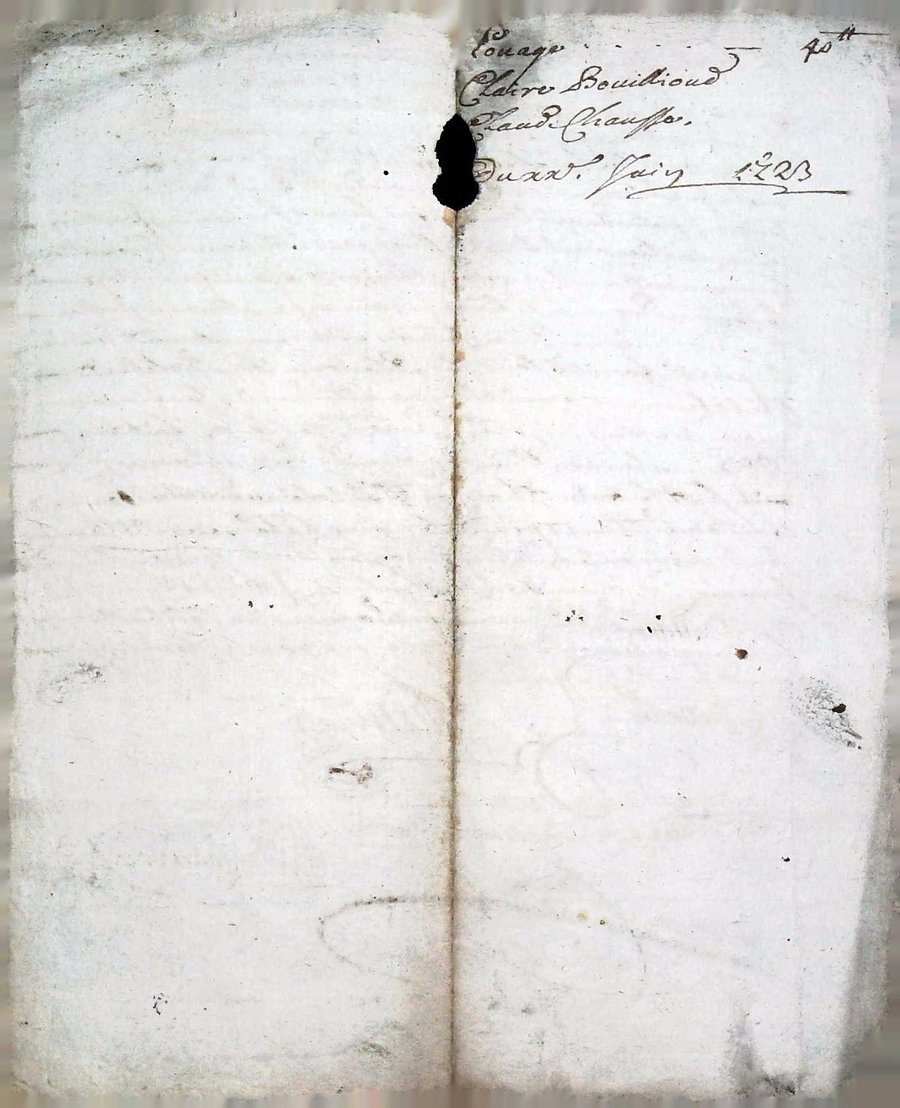 Louage . . . . — 40 ₶
Claire Bouillioud
Claud Chausse.
Du xxe. Juin 1723